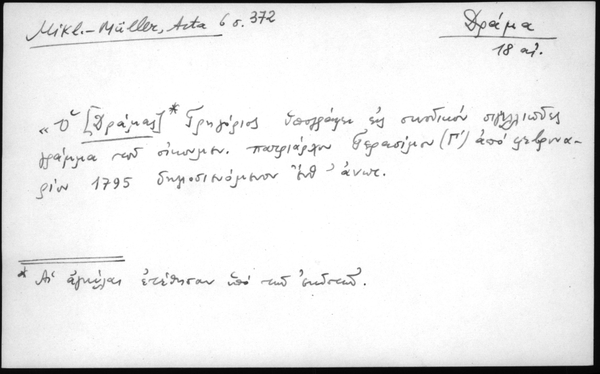 Mikl.-Müller, Acta 6 σ. 372
Δράμα
18 αἰ.
« Ὁ [Δράμας]* Γρηγόριος ὑπογράφει εἰς συνοδικόν σιγιλλιῶδες
γράμμα τοῦ οἰκουμεν. πατριάρχου Γερασίμου (Γ') ἀπό φεβρουα-
ρίου 1795 δημοσιευόμενον ἔνθ' ἄνωτ.
* Αἱ ἀγκύλαι ἐτέθησαν ὑπό τοῦ ἐκδότου.